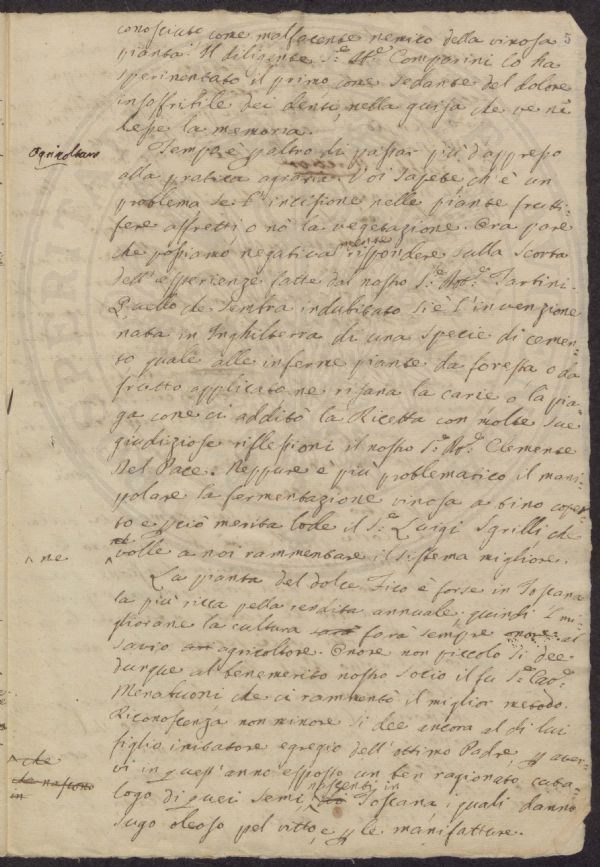 5
conosciute come malfacente nemico della vinosa
pianta. Il diligente S.e Att.e Comparini lo ha
sperimentato il primo come sedante del dolore
insoffribile dei denti, nella guisa che ve ne
lesse la memoria.
Agricoltura
Tempo è p altro di passar più d'appresso
alla pratica agraria. Voi sapete, ch'è un
problema se l'incisione nelle piante frutti-
fere affretti, o nò la vegetazione. Ora pare
che possiamo negativamente rispondere sulla scorta
dell'esperienze fatte dal nostro S.e Tartini.
Quello che sembra indubitato si è l'invenzione
nata in Inghilterra di una specie di cemen-
to quale alle inferme piante da foresta o da
frutto applicato ne risana la carie o la pia-
ga come ci additò la Ricetta con molte sue
giudiziose riflessioni il nostro Clemente
Del Pace. Neppure è più problematico il mani-
polare la fermentazione vinosa a tino coper-
to e p ciò merita lode il S.e Luigi Sgrilli che
ne
volle a noi rammentare il sistema migliore.
La pianta del dolce Fico è forse in Toscana
la più ricca pella rendita annuale, quindi l'mi-
gliorane la cultura farà sempre onore al
savio agricoltore. Onore non piccolo si dee
dunque al benemerito nostro socio il fu S.e
Menabuoni che ci rammentò il miglior metodo.
Riconoscenza non minore si dee ancora al di lui
figlio imitatore egregio dell'ottimo Padre, p aver-
che
vi in quest'anno esposto un ben ragionato cata-
che nascono
in
nascenti in
logo di quei semi, Toscana i quali danno
sugo oleoso pel vitto, e p le manifatture.